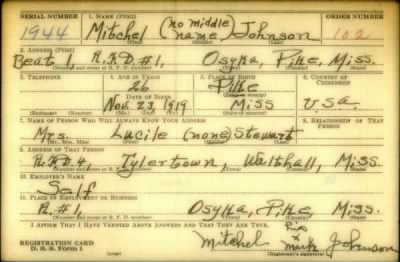 SERIAL NUMBER 1. NAME (Print) ORDER NUMBER
1944 Mitchel (no middle name) Johnson 102
(First) (Middle) (Last)
2. ADDRESS (Print)
Beat 1, R.R.D. #1, Osyka, Pike, Miss.
(Number and street or R. F. D. number) (Town) (County) (State)
3. TELEPHONE 4. AGE IN YEARS 5. PLACE OF BIRTH 6. COUNTRY OF CITIZENSHIP
26 Pike
DATE OF BIRTH (Town or county)
Nov. 23, 1919 Miss U.S.A.
(Exchange) (Number) (Mo.) (Day) (Yr.) (State or country)
7. NAME OF PERSON WHO WILL ALWAYS KNOW YOUR ADDRESS 8. RELATIONSHIP OF THAT PERSON
Mrs. Lucile (none) Stewart
(Mr., Mrs., Miss) (First) (Middle) (Last)
9. ADDRESS OF THAT PERSON
R.R.D. 4, Tylertown, Walthall, Miss.
(Number and street or R. F. D. number) (Town) (County) (State)
10. EMPLOYER'S NAME
Self
11. PLACE OF EMPLOYMENT OR BUSINESS
R. #1, Osyka, Pike Miss.
(Number and street or R. F. D. number) (Town) (County) (State)
I AFFIRM THAT I HAVE VERIFIED ABOVE ANSWERS AND THAT THEY ARE TRUE.
REGISTRATION CARD
D. S. S. FORM 1
(over)
Mitchel x mark Johnson
(Registrant's signature)